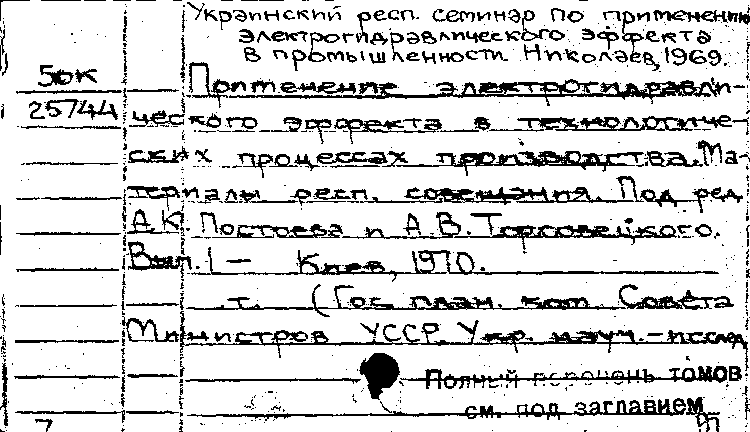 Украинский респ. семинар по применению
электрогидравлического эффекта
в промышленности. Николаев, 1969.
5ок Применение электрогидравли-
25744 ческого эффекта в технологиче-
ских процессах производства. Ма-
териалы респ. совещания. Под ред.
А.К. Постоева и А.В. Торговецкого.
Вып. 1 — Киев, 1970.
т. (Гос план. ком. Совета
Министров УССР. Укр. науч.-исслед
Полный перечень томов
см. под заглавием
7